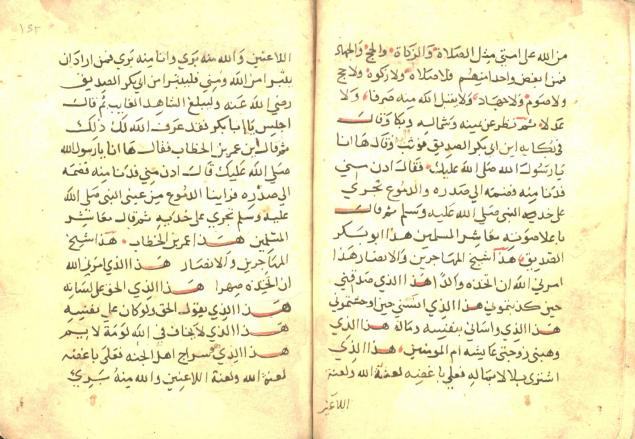 من الله على امتي مثل الصلاة والزكاة والحج والجهاد
فمن ابغض واحدا منهم فلا صلاة ولا زكوة ولا حج
ولا صوم ولا جهاد ولا يقبل الله منه صرفا ولا
عدلا ثم نظر عن يمينه وشماله وقالت
ابي بكر الصديق فوثب وقال ها انا
يا رسول الله صلى الله عليك فقال ادن مني
فدنا منه فضمه الى صدره والدموع تجري
على خد النبي صلى الله عليه وسلم ثم قالت
باعلا صوته معاشر المسلمين هذا ابو بكر
الصديق هذا شيخ المهاجرين والانصار هذا
امرني الله ان اتخذه والدا هذا الذي صدقني
حين كذبتموني هذا الذي انسني حين اوحشتموني
هذا الذي واساني بنفسه وماله هذا الذي
وهبني زوجتي عايشه ام المومنين هذا الذي
اشترى بلالا بماله فعلى باغضه لعنة الله ولعنة
اللاعنين
١٥٢
اللاعنين والله منه بري وانا منه بري فمن اراد ان
يتبرا من الله ومني فليتبرا من ابي بكر الصديق
رضي الله عنه وليبلغ الشاهد الغايب ثم قالت
اجلس يا ابا بكر فقد عرف الله لك ذلك
ثم قال ابن عمر بن الخطاب فقال ها انا يا رسول الله
صلى الله عليك قالت ادن مني فدنا منه فضمه
الى صدره فراينا الدموع من عيني النبي صلى الله
عليه وسلم تجري على خديه ثم قال معاشر
المسلمين هذا عمر بن الخطاب هذا شيخ
المهاجرين والانصار هذا الذي امرني الله
ان اتخذه صهرا هذا الذي الحق على لسانه
هذا الذي يقول الحق ولو كان على نفسه
هذا الذي لا يخاف في الله لومة لايم
هذا الذي سراج اهل الجنه فعلى باغضه
لعنة الله ولعنة اللاعنين والله منه بري